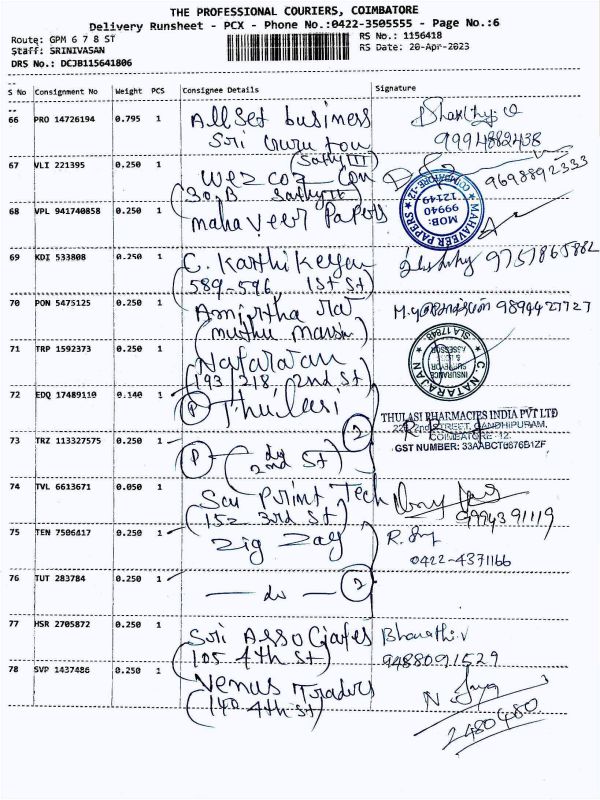 THE PROFESSIONAL COURIERS, COIMBATORE
Delivery Runsheet - PCX - Phone No.:0422-3505555 - Page No.:6
Route: GPM 6 7 8 ST
RS No.: 1156418
Staff: SRINIVASAN
RS Date: 20-Apr-2023
DRS No.: DCJB115641806
S No Consignment No Weight PCS Consignee Details Signature
66 PRO 14726194 0.795 1 All Set business
Sri Guru
9994882438
67 VLI 221395 0.250 1 Wezcoz Con
(Sathy III)
(30, B Sathy II
9698892333
68 VPL 941740858 0.250 1 mahaveer Papers
★ MAHAVEER PAPERS ★ COIMBATORE-12.
MOB: 99940 12149
69 KDI 533808 0.250 1 C. Karthikeyan
(589-596, 1st St)
9757865882
70 PON 5475125 0.250 1 Amirtha
(muthu
9894427727
71 TRP 1592373 0.250 1 Natarajan
(193/218, 2nd St)
★ C. NATARAJAN ★ SLA 17848
INSURANCE SURVEYOR & LOSS ASSESSOR
72 EDQ 17489110 0.140 1 (P) Thulasi
THULASI PHARMACIES INDIA PVT LTD
2ND STREET, GANDHIPURAM,
COIMBATORE-12.
GST NUMBER: 33AABCT6676B1ZF
73 TRZ 113327575 0.250 1 (P) - do - (2)
2nd St
74 TVL 6613671 0.050 1 Sai Print Tech
(152 3rd St)
9994391119
75 TEN 7506417 0.250 1 Zig Zag
R.
0422-4371166
76 TUT 283784 0.250 1 - do - (2)
77 HSR 2705872 0.250 1 Sri Associates Bharathi.V
(105 4th St)
9488091529
78 SVP 1437486 0.250 1 Venus Traders
(140 4th St)
N.
2480480